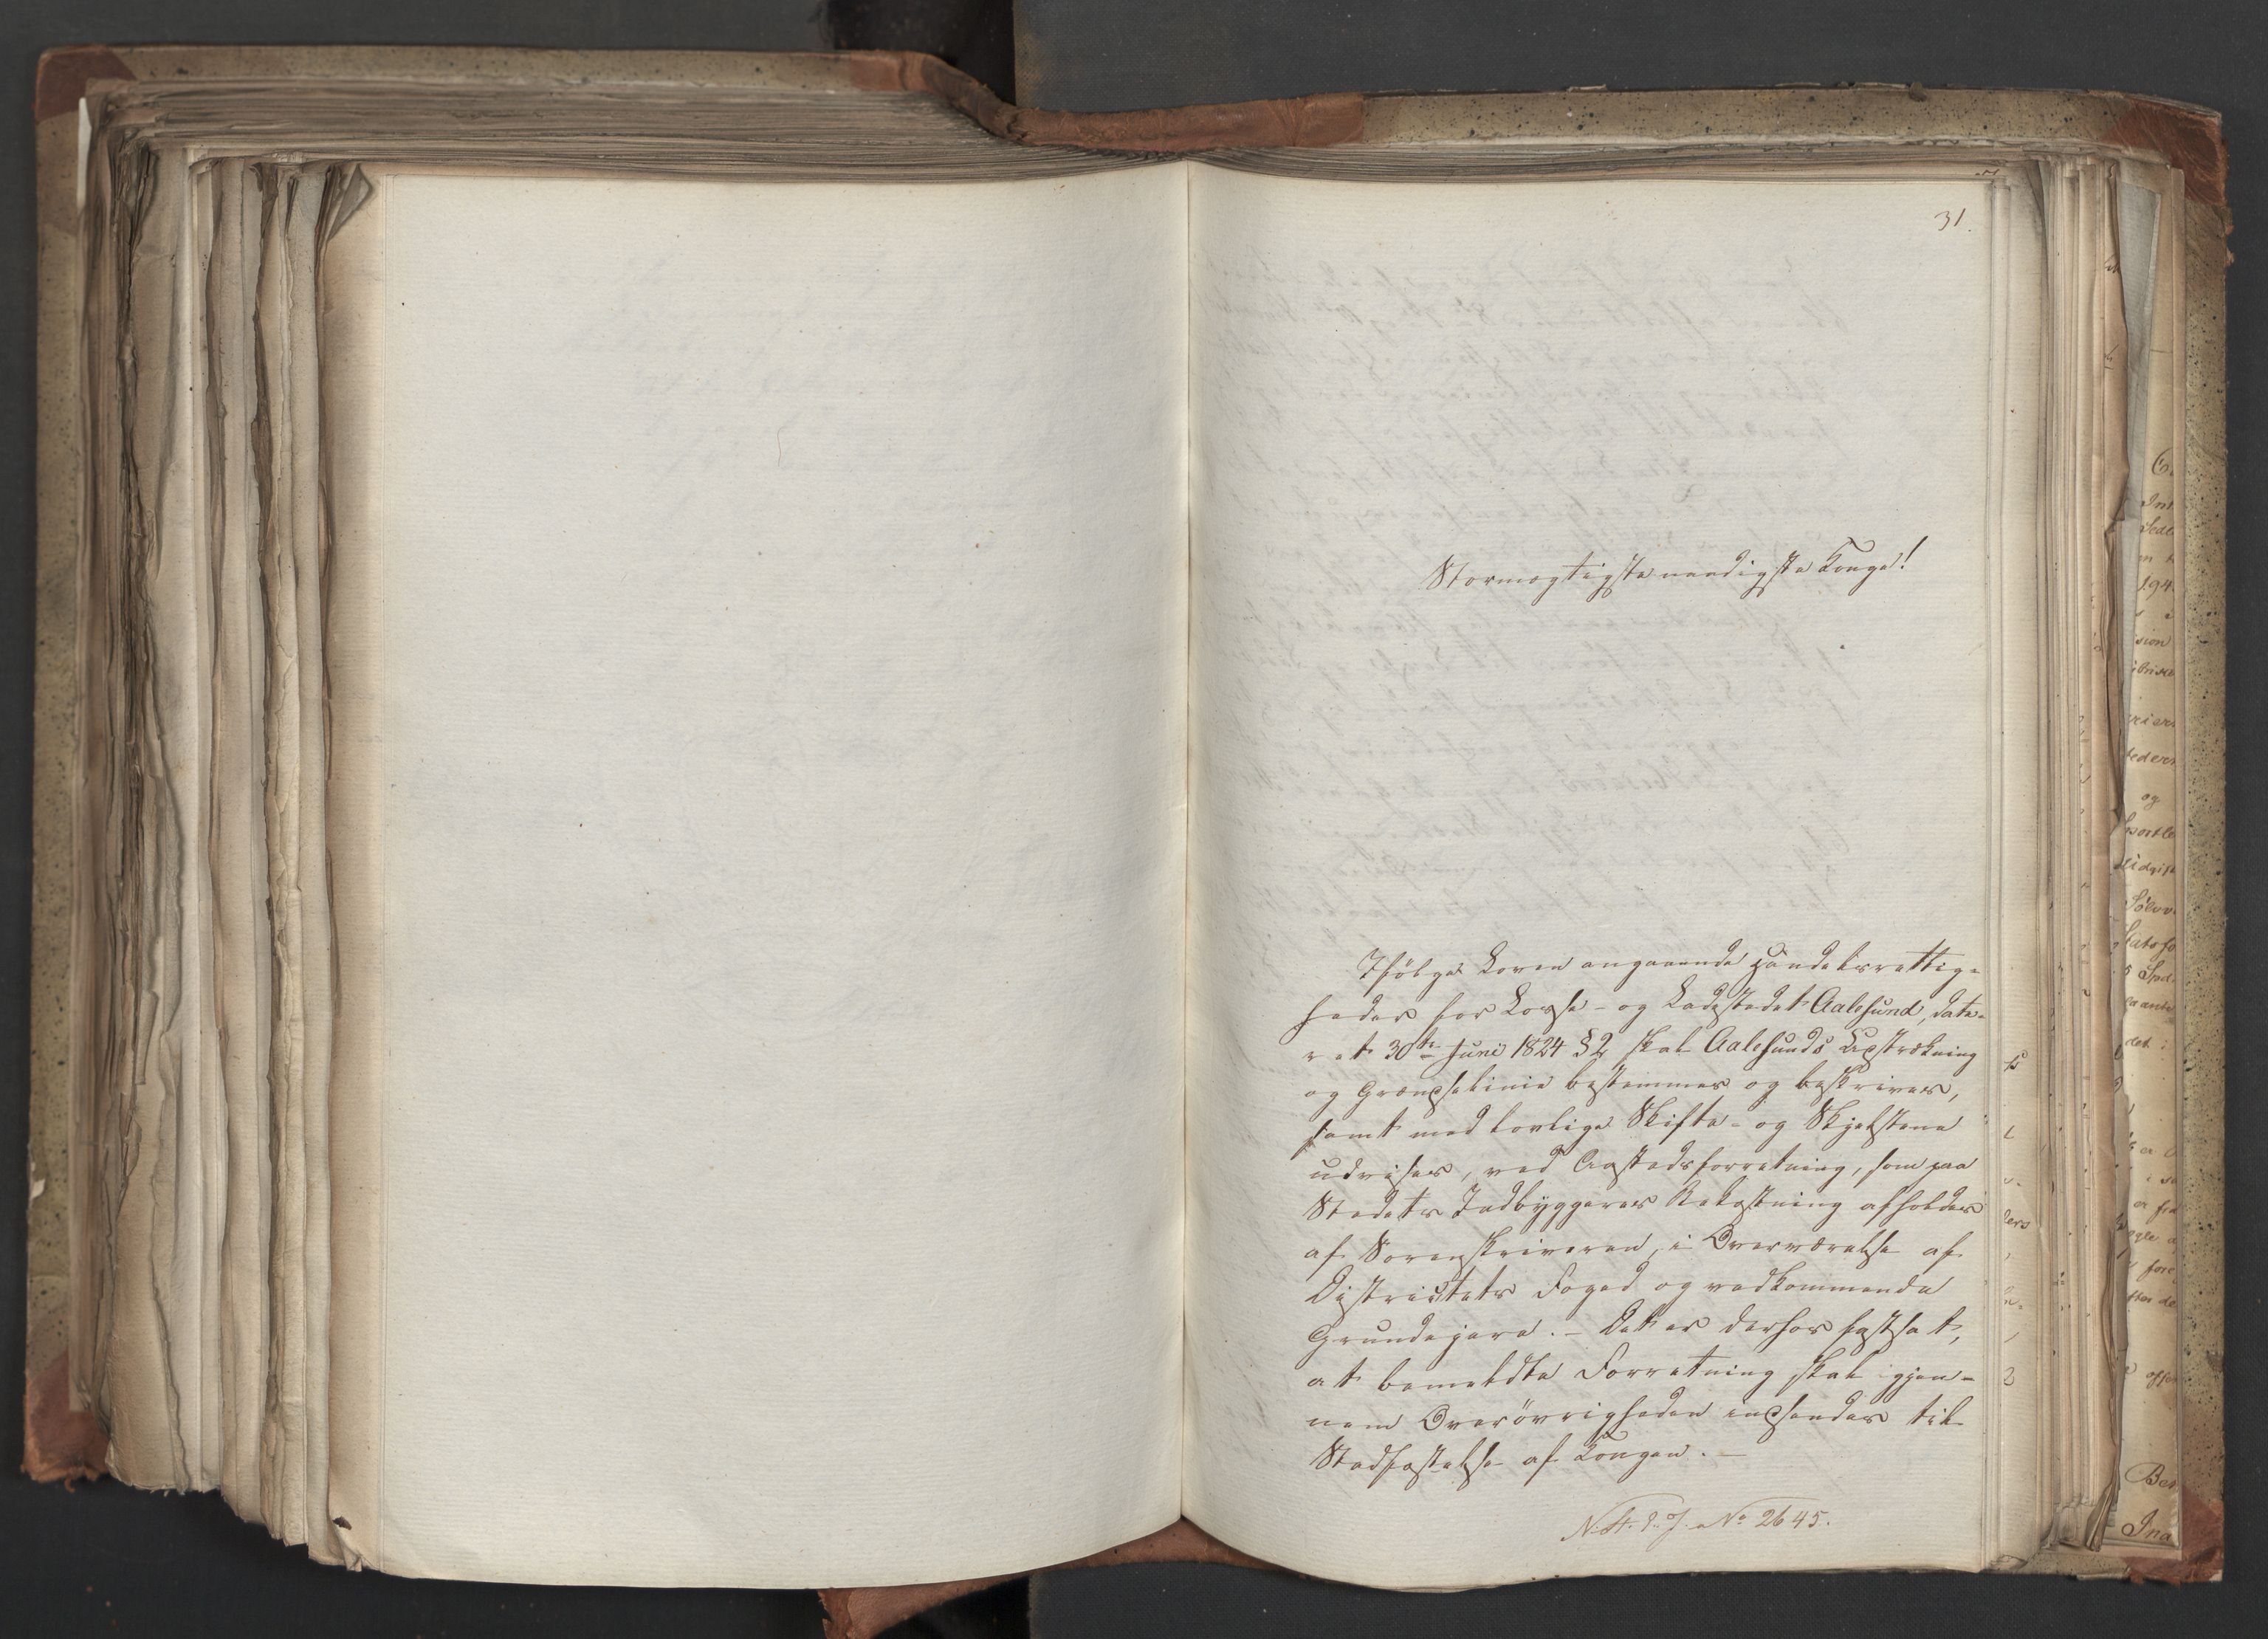 31.
Stormægtigste naadigste Konge!
Ifölge Loven angaaende Handelsrettig-
heder for Losse- og Ladestedet Aalesund, date-
ret 30te Juni 1824 § 2 skal Aalesunds Udstrækning
og Grændselinie bestemmes og beskrives,
samt med lovlige Skifte- og Skjelstene
udvises, ved Aastedsforretning, som paa
Stedets Indbyggeres Bekostning afholdes
af Sorenskriveren, i Overværelse af
Districtets Foged og vedkommende
Grundejere. - Det er derhos fastsat,
at bemeldte Forretning skal igjen-
nem Overövrigheden indsendes til
Stadfæstelse af Kongen. -
No 2645.